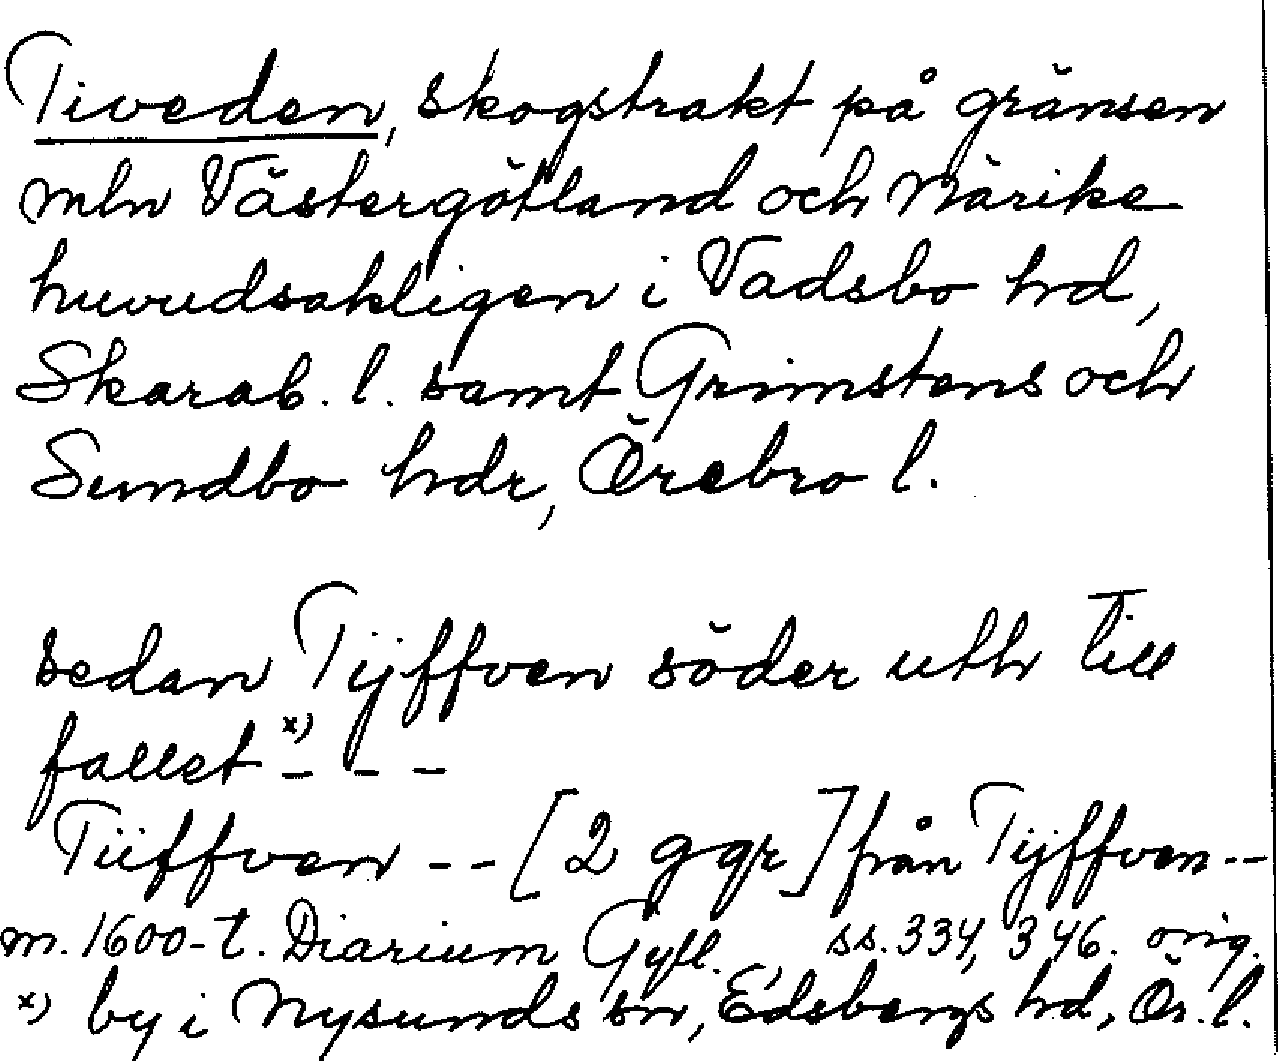 Tiveden, skogstrakt på gränsen
mln Västergötland och Närike
huvudsakligen i Vadsbo hd,
Skarab. l. samt Grimstens och
Sundbo hdr, Örebro l.
sedan Tÿffven söder uth till
fallet x) - - -
Tiiffven -- [2 ggr] från Tÿffven --
m. 1600-t. Diarium Gyll., ss. 334, 346. orig.
x) by i Nysunds sn, Edsbergs hd, Ör. l.